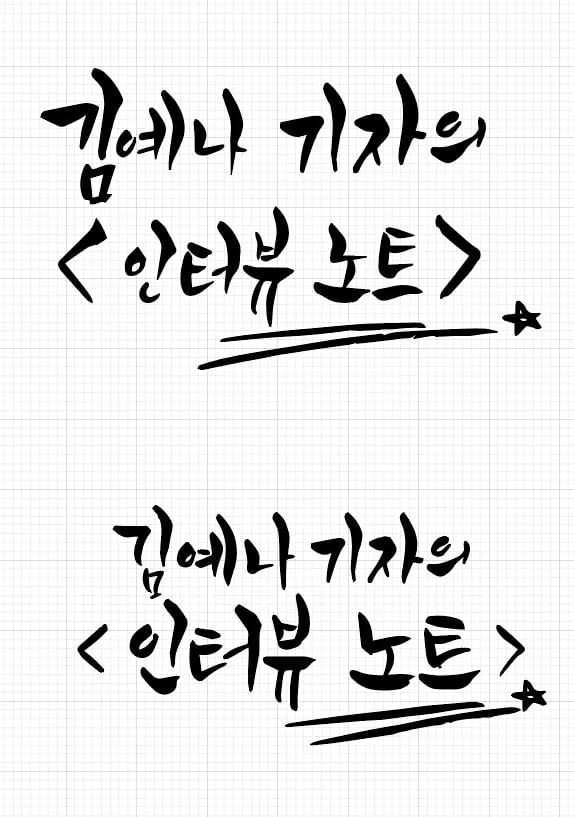 김예나 기자의
<인터뷰 노트>
김예나 기자의
<인터뷰 노트>